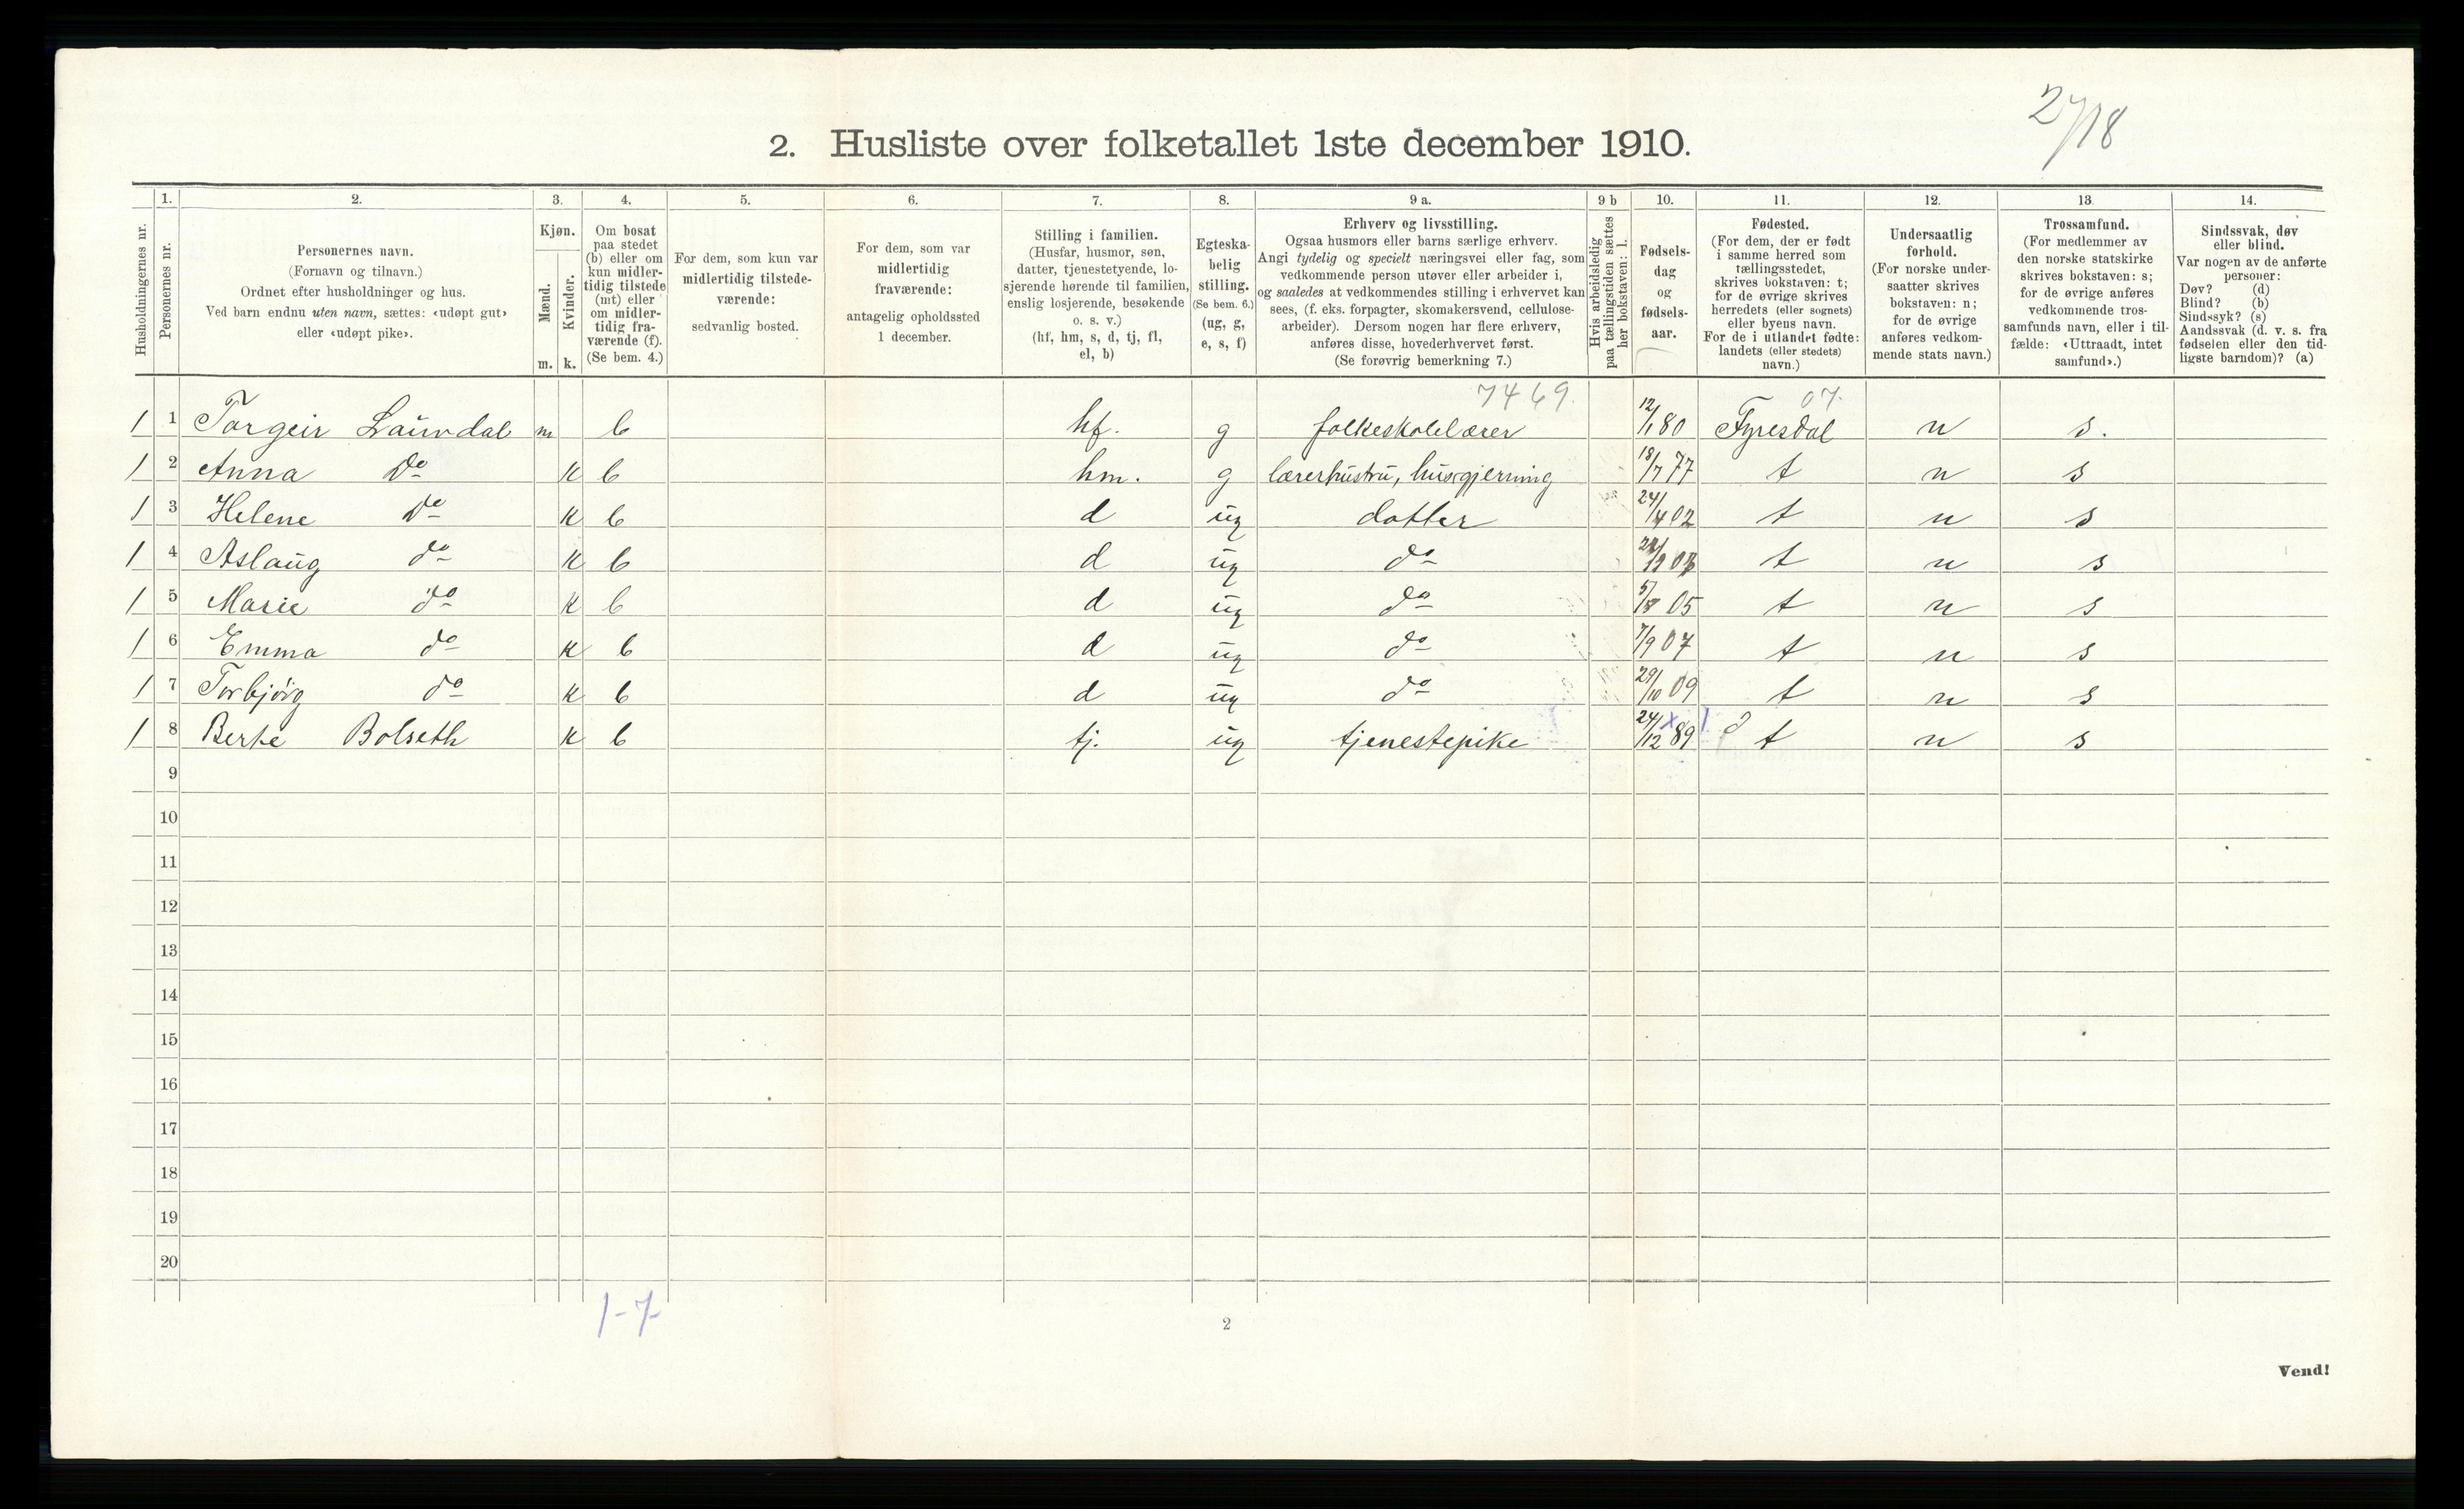 27/18
2. Husliste over folketallet 1ste december 1910.
Husholdningernes nr.
1. Personernes nr.
2. Personernes navn. (Fornavn og tilnavn.) Ordnet efter husholdninger og hus. Ved barn endnu uten navn, sættes: «udøpt gut» eller «udøpt pike».
3. Kjøn. Mænd. m. Kvinder. k.
4. Om bosat paa stedet (b) eller om kun midlertidig tilstede (mt) eller om midlertidig fraværende (f). (Se bem. 4.)
5. For dem, som kun var midlertidig tilstedeværende: sedvanlig bosted.
6. For dem, som var midlertidig fraværende: antagelig opholdssted 1 december.
7. Stilling i familien. (Husfar, husmor, søn, datter, tjenestetyende, losjerende hørende til familien, enslig losjerende, besøkende o. s. v.) (hf, hm, s, d, tj, fl, el, b)
8. Egteskabelig stilling. (Se bem. 6.) (ug, g, e, s, f)
9 a. Erhverv og livsstilling. Ogsaa husmors eller barns særlige erhverv. Angi tydelig og specielt næringsvei eller fag, som vedkommende person utøver eller arbeider i, og saaledes at vedkommendes stilling i erhvervet kan sees, (f. eks. forpagter, skomakersvend, cellulosearbeider). Dersom nogen har flere erhverv, anføres disse, hovederhvervet først. (Se forøvrig bemerkning 7.)
9 b Hvis arbeidsledig paa tællingstiden sættes her bokstaven: l.
10. Fødselsdag og fødselsaar.
11. Fødested. (For dem, der er født i samme herred som tællingsstedet, skrives bokstaven: t; for de øvrige skrives herredets (eller sognets) eller byens navn. For de i utlandet fødte: landets (eller stedets) navn.)
12. Undersaatlig forhold. (For norske undersaatter skrives bokstaven: n; for de øvrige anføres vedkommende stats navn.)
13. Trossamfund. (For medlemmer av den norske statskirke skrives bokstaven: s; for de øvrige anføres vedkommende trossamfunds navn, eller i tilfælde: «Uttraadt, intet samfund».)
14. Sindssvak, døv eller blind. Var nogen av de anførte personer: Døv? (d) Blind? (b) Sindssyk? (s) Aandssvak (d. v. s. fra fødselen eller den tidligste barndom)? (a)
7469. 07.
1 1 Torgeir Lauvdal m b hf. g folkeskolelærer 12/1 80 Fyresdal n s.
1 2 Anna do k b hm. g lærerhustru, husgjerning 18/7 77 t n s
1 3 Helene do k b d ug datter 24/4 02 t n s
1 4 Aslaug do k b d ug do t n s
1 5 Marie do k b d ug do 5/8 05 t n s
1 6 Emma do k b d ug do 7/9 07 t n s
1 7 Torbjörg do k b d ug do 29/10 09 t n s
1 8 Berte Bolseth k b tj. ug tjenestepike 24/12 89 t n s
9
10
11
12
13
14
15
16
17
18
19
20
1-7
2
Vend!